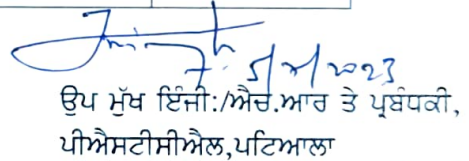 ਉਪ ਮੁੱਖ ਇੰਜੀ:/ਐਚ.ਆਰ ਤੇ ਪ੍ਰਬੰਧਕੀ,
ਪੀਐਸਟੀਸੀਐਲ,ਪਟਿਆਲਾ